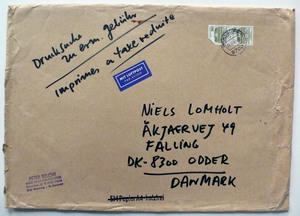 Drucksache
zu erm. gebühr
Imprimer a taxe reduite
MIT LUFTPOST
NIELS LOMHOLT
ÅKJAERVEJ 49
FALLING
DK-8300 ODDER
DANMARK